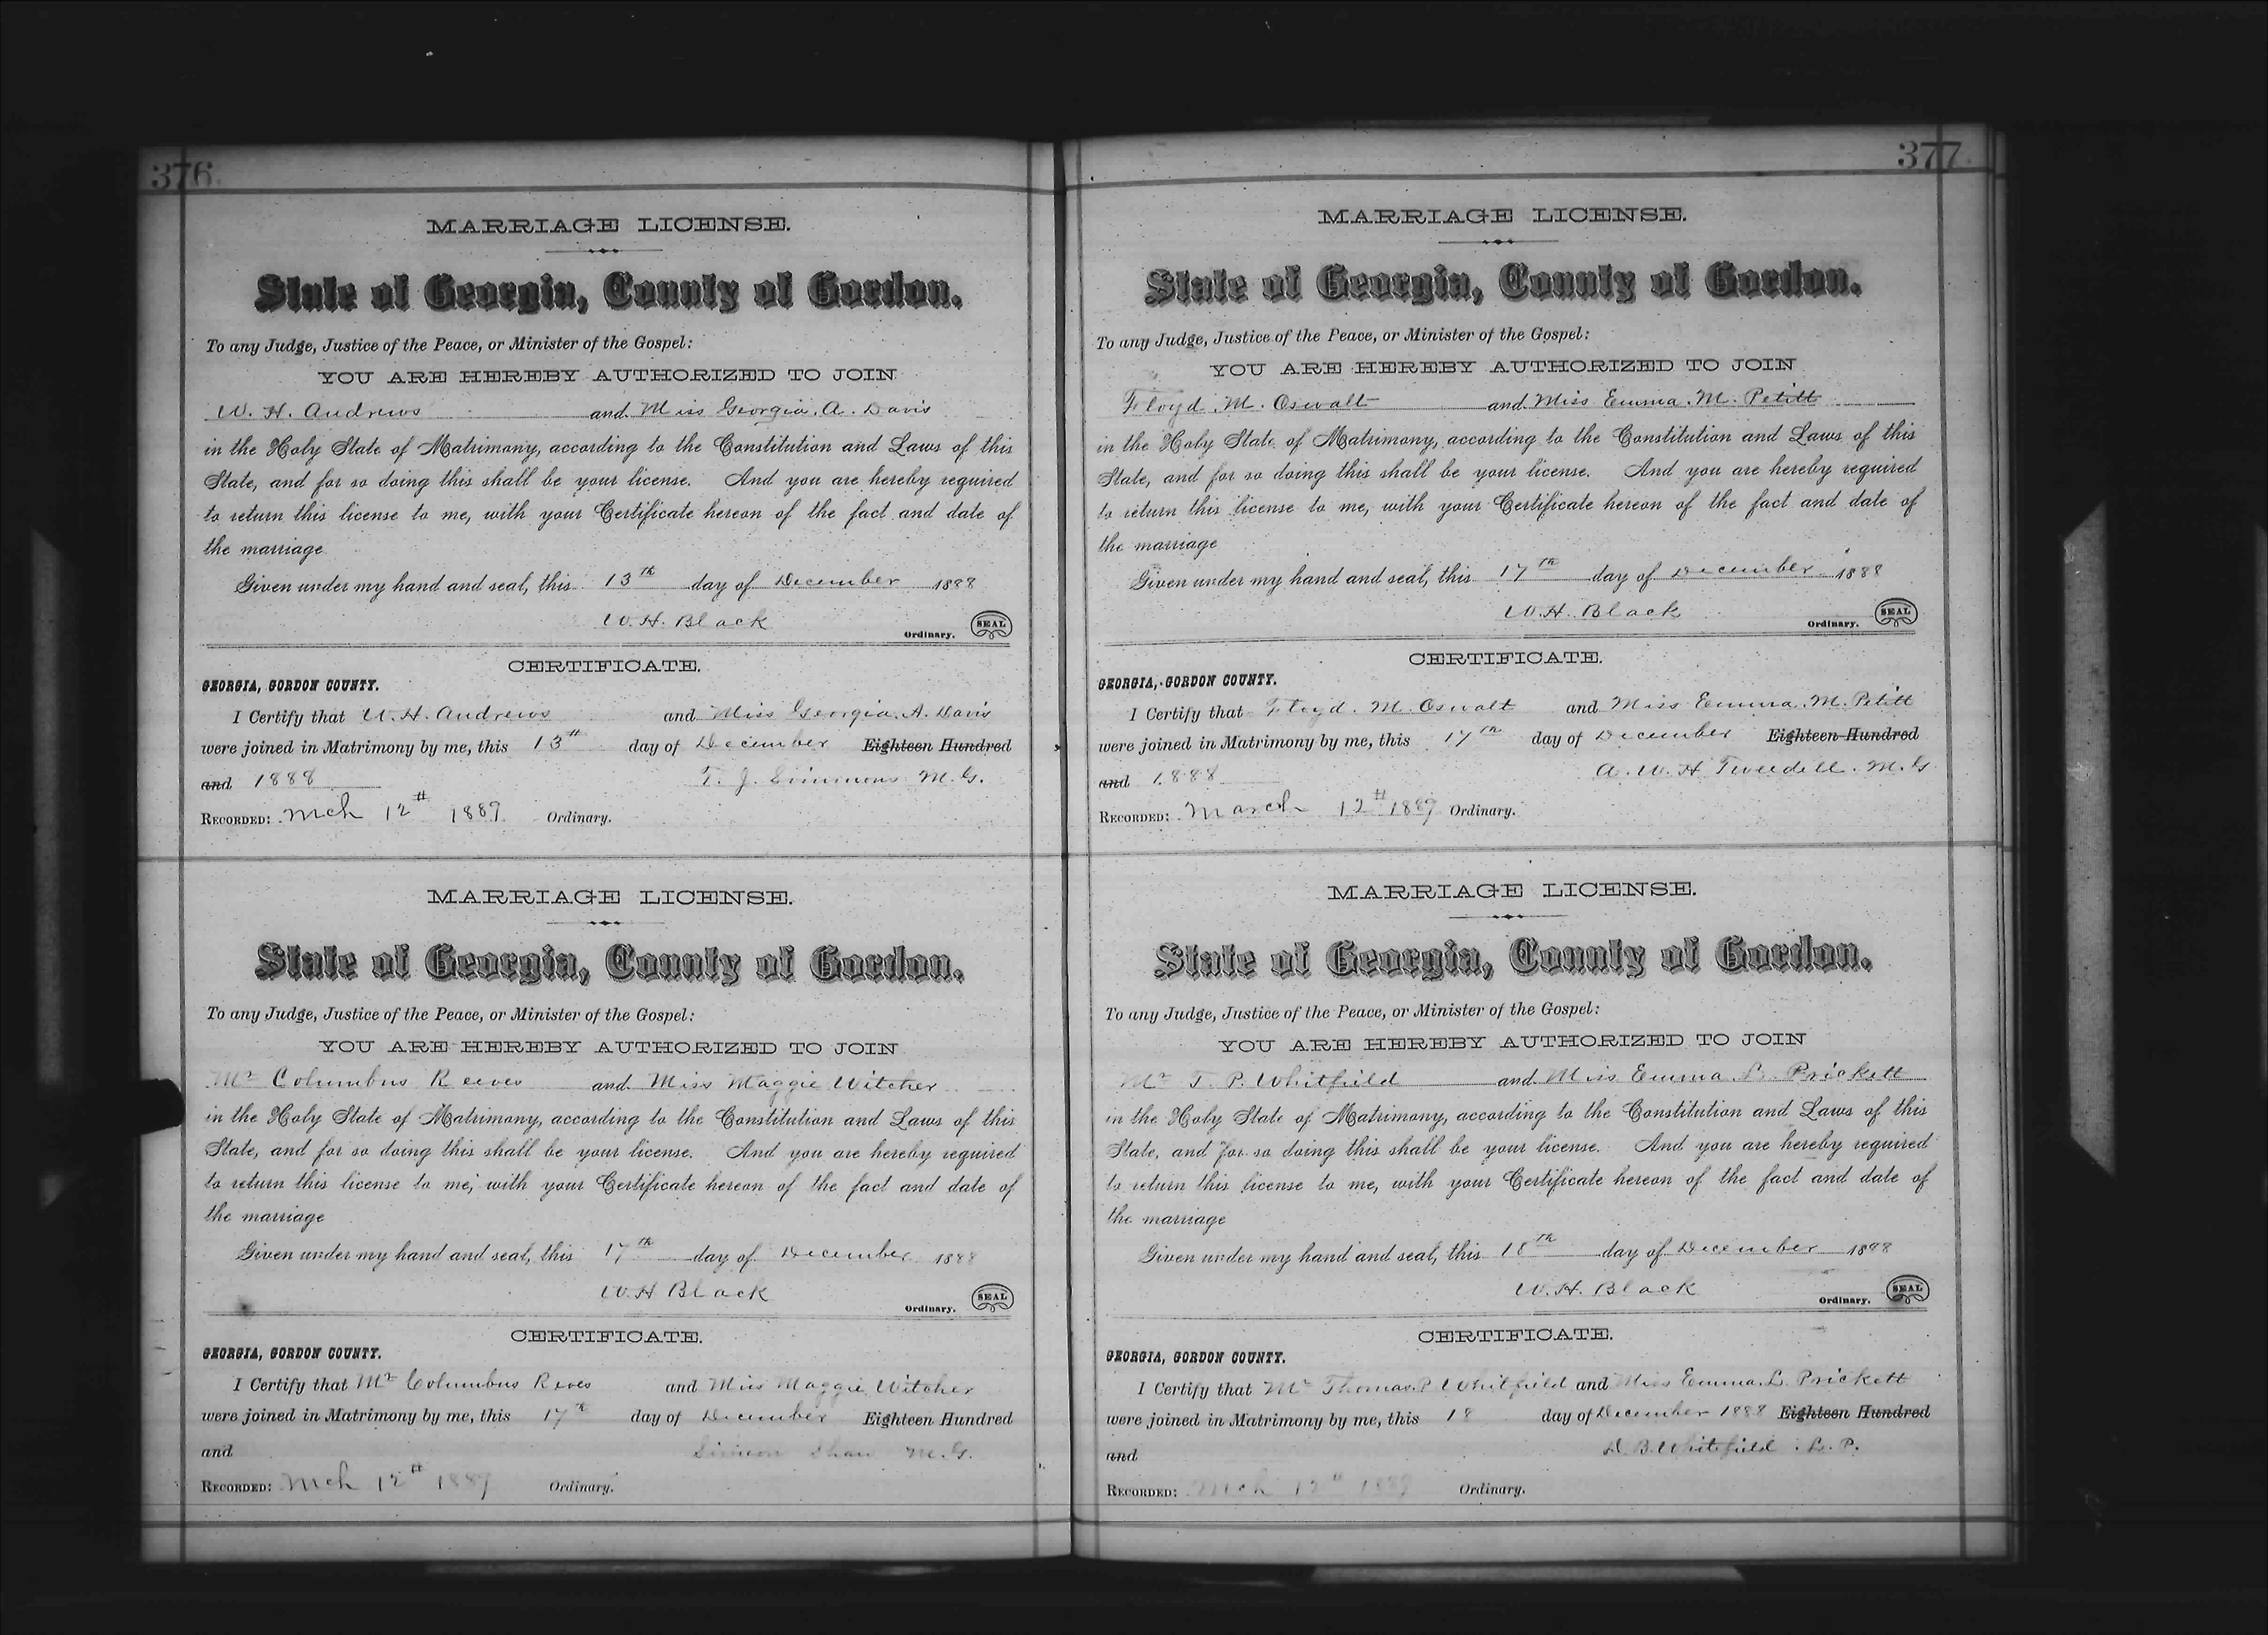 376.
MARRIAGE LICENSE.
State of Georgia, County of Gordon.
To any Judge, Justice of the Peace, or Minister of the Gospel:
YOU ARE HEREBY AUTHORIZED TO JOIN
W. H. Andrews and Miss Georgia. A. Davis
in the Holy State of Matrimony, according to the Constitution and Laws of this
State, and for so doing this shall be your license. And you are hereby required
to return this license to me, with your Certificate hereon of the fact and date of
the marriage
Given under my hand and seal, this 13th day of December 1888
W. H. Black
Ordinary. SEAL
CERTIFICATE.
GEORGIA, GORDON COUNTY.
I Certify that W. H. Andrews and Miss Georgia. A. Davis
were joined in Matrimony by me, this 13th day of December Eighteen Hundred
and 1888 T. J. Simmons M. G.
RECORDED: Mch 12th 1889 Ordinary.
MARRIAGE LICENSE.
State of Georgia, County of Gordon.
To any Judge, Justice of the Peace, or Minister of the Gospel:
YOU ARE HEREBY AUTHORIZED TO JOIN
Mr Columbus Reeves and Miss Maggie Witcher
in the Holy State of Matrimony, according to the Constitution and Laws of this
State, and for so doing this shall be your license. And you are hereby required
to return this license to me, with your Certificate hereon of the fact and date of
the marriage
Given under my hand and seal, this 17th day of December 1888
W. H Black
Ordinary. SEAL
CERTIFICATE.
GEORGIA, GORDON COUNTY.
I Certify that Mr Columbus Reves and Miss Maggie Witcher
were joined in Matrimony by me, this 17th day of December Eighteen Hundred
and Simeon Shaw M. G.
RECORDED: Mch 12th 1889 Ordinary.
377.
MARRIAGE LICENSE.
State of Georgia, County of Gordon.
To any Judge, Justice of the Peace, or Minister of the Gospel:
YOU ARE HEREBY AUTHORIZED TO JOIN
Floyd. M. Oswalt and Miss Emma. M. Petitt
in the Holy State of Matrimony, according to the Constitution and Laws of this
State, and for so doing this shall be your license. And you are hereby required
to return this license to me, with your Certificate hereon of the fact and date of
the marriage
Given under my hand and seal, this 17th day of December 1888
W. H. Black
Ordinary. SEAL
CERTIFICATE.
GEORGIA, GORDON COUNTY.
I Certify that Floyd. M. Oswalt and Miss Emma. M. Petitt
were joined in Matrimony by me, this 17th day of December Eighteen Hundred
and 1888 A. W. H Tweedell. M. G
RECORDED: March 12th 1889 Ordinary.
MARRIAGE LICENSE.
State of Georgia, County of Gordon.
To any Judge, Justice of the Peace, or Minister of the Gospel:
YOU ARE HEREBY AUTHORIZED TO JOIN
Mr T. P. Whitfield and Miss Emma L. Prickett
in the Holy State of Matrimony, according to the Constitution and Laws of this
State, and for so doing this shall be your license. And you are hereby required
to return this license to me, with your Certificate hereon of the fact and date of
the marriage
Given under my hand and seal, this 18th day of December 1888
W. H. Black
Ordinary. SEAL
CERTIFICATE.
GEORGIA, GORDON COUNTY.
I Certify that Mr Thomas. P Whitfield and Miss Emma. L. Prickett
were joined in Matrimony by me, this 18 day of December 1888 Eighteen Hundred
and D. B. Whitfield. L. P.
RECORDED: Mch 12th 1889 Ordinary.